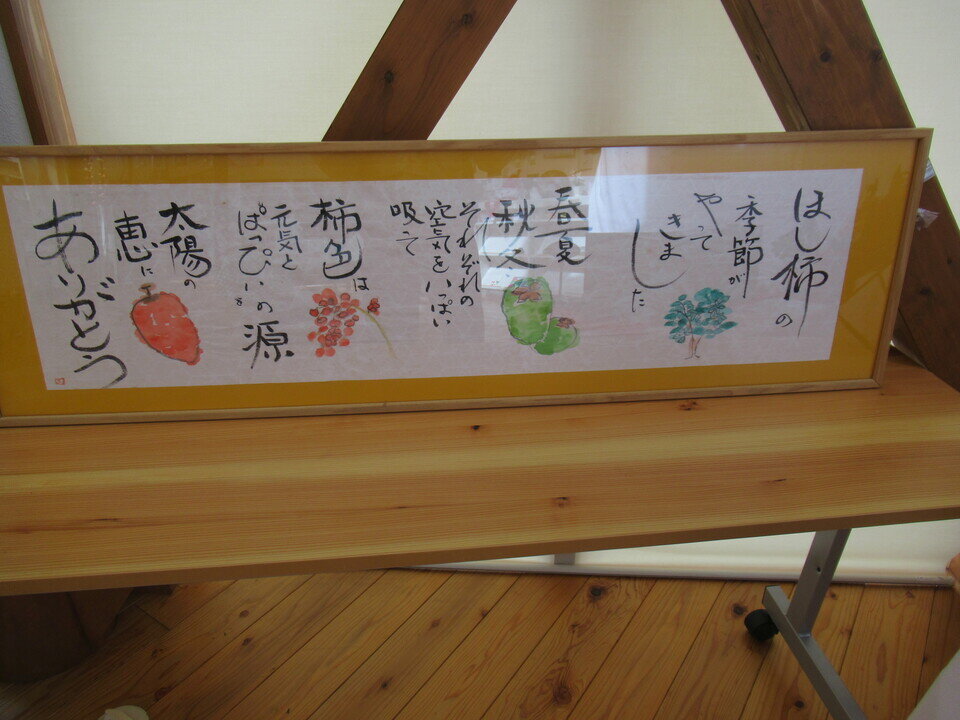 ほし柿の
季節が
やって
きま
した
春夏
秋冬
それぞれの
空気をいっぱい
吸って
柿色は
元気と
ぱっぴぃの
源
太陽の
恵に
ありがとう